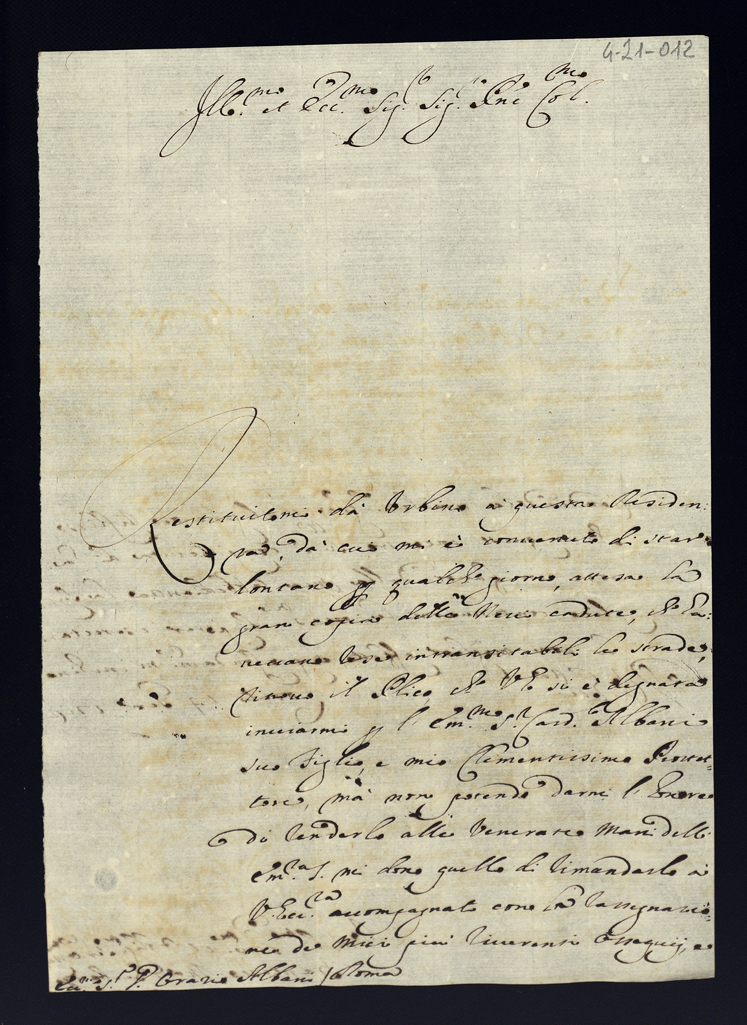 4-21-012
Ill.mo et Ecc.mo Sig.r Sig.r Pne Col.mo
Restituitomi dà Urbino a questa Residen:
za, dà cui mi è convenuto di star
lontano p qualche giorno, attesa la
gran copia delle Nevi cadute, che ha:
veciano rese intransitabili le strade,
il Plico che V. E. si è degnata
inviarmi p l'Em.mo S.r Card. Albani
suo figlio, e mio Clementissimo Protet:
tore, mà non potendo darmi l'honore
di renderlo alle venerate mani dell'
Em.za S. mi dono quello di rimandarlo à
V. Ecc.za accompagnato con la rassegnazio:
ne de miei più riverenti ossequij, e
Ecc.mo S.r P. Orazio Albani / Roma